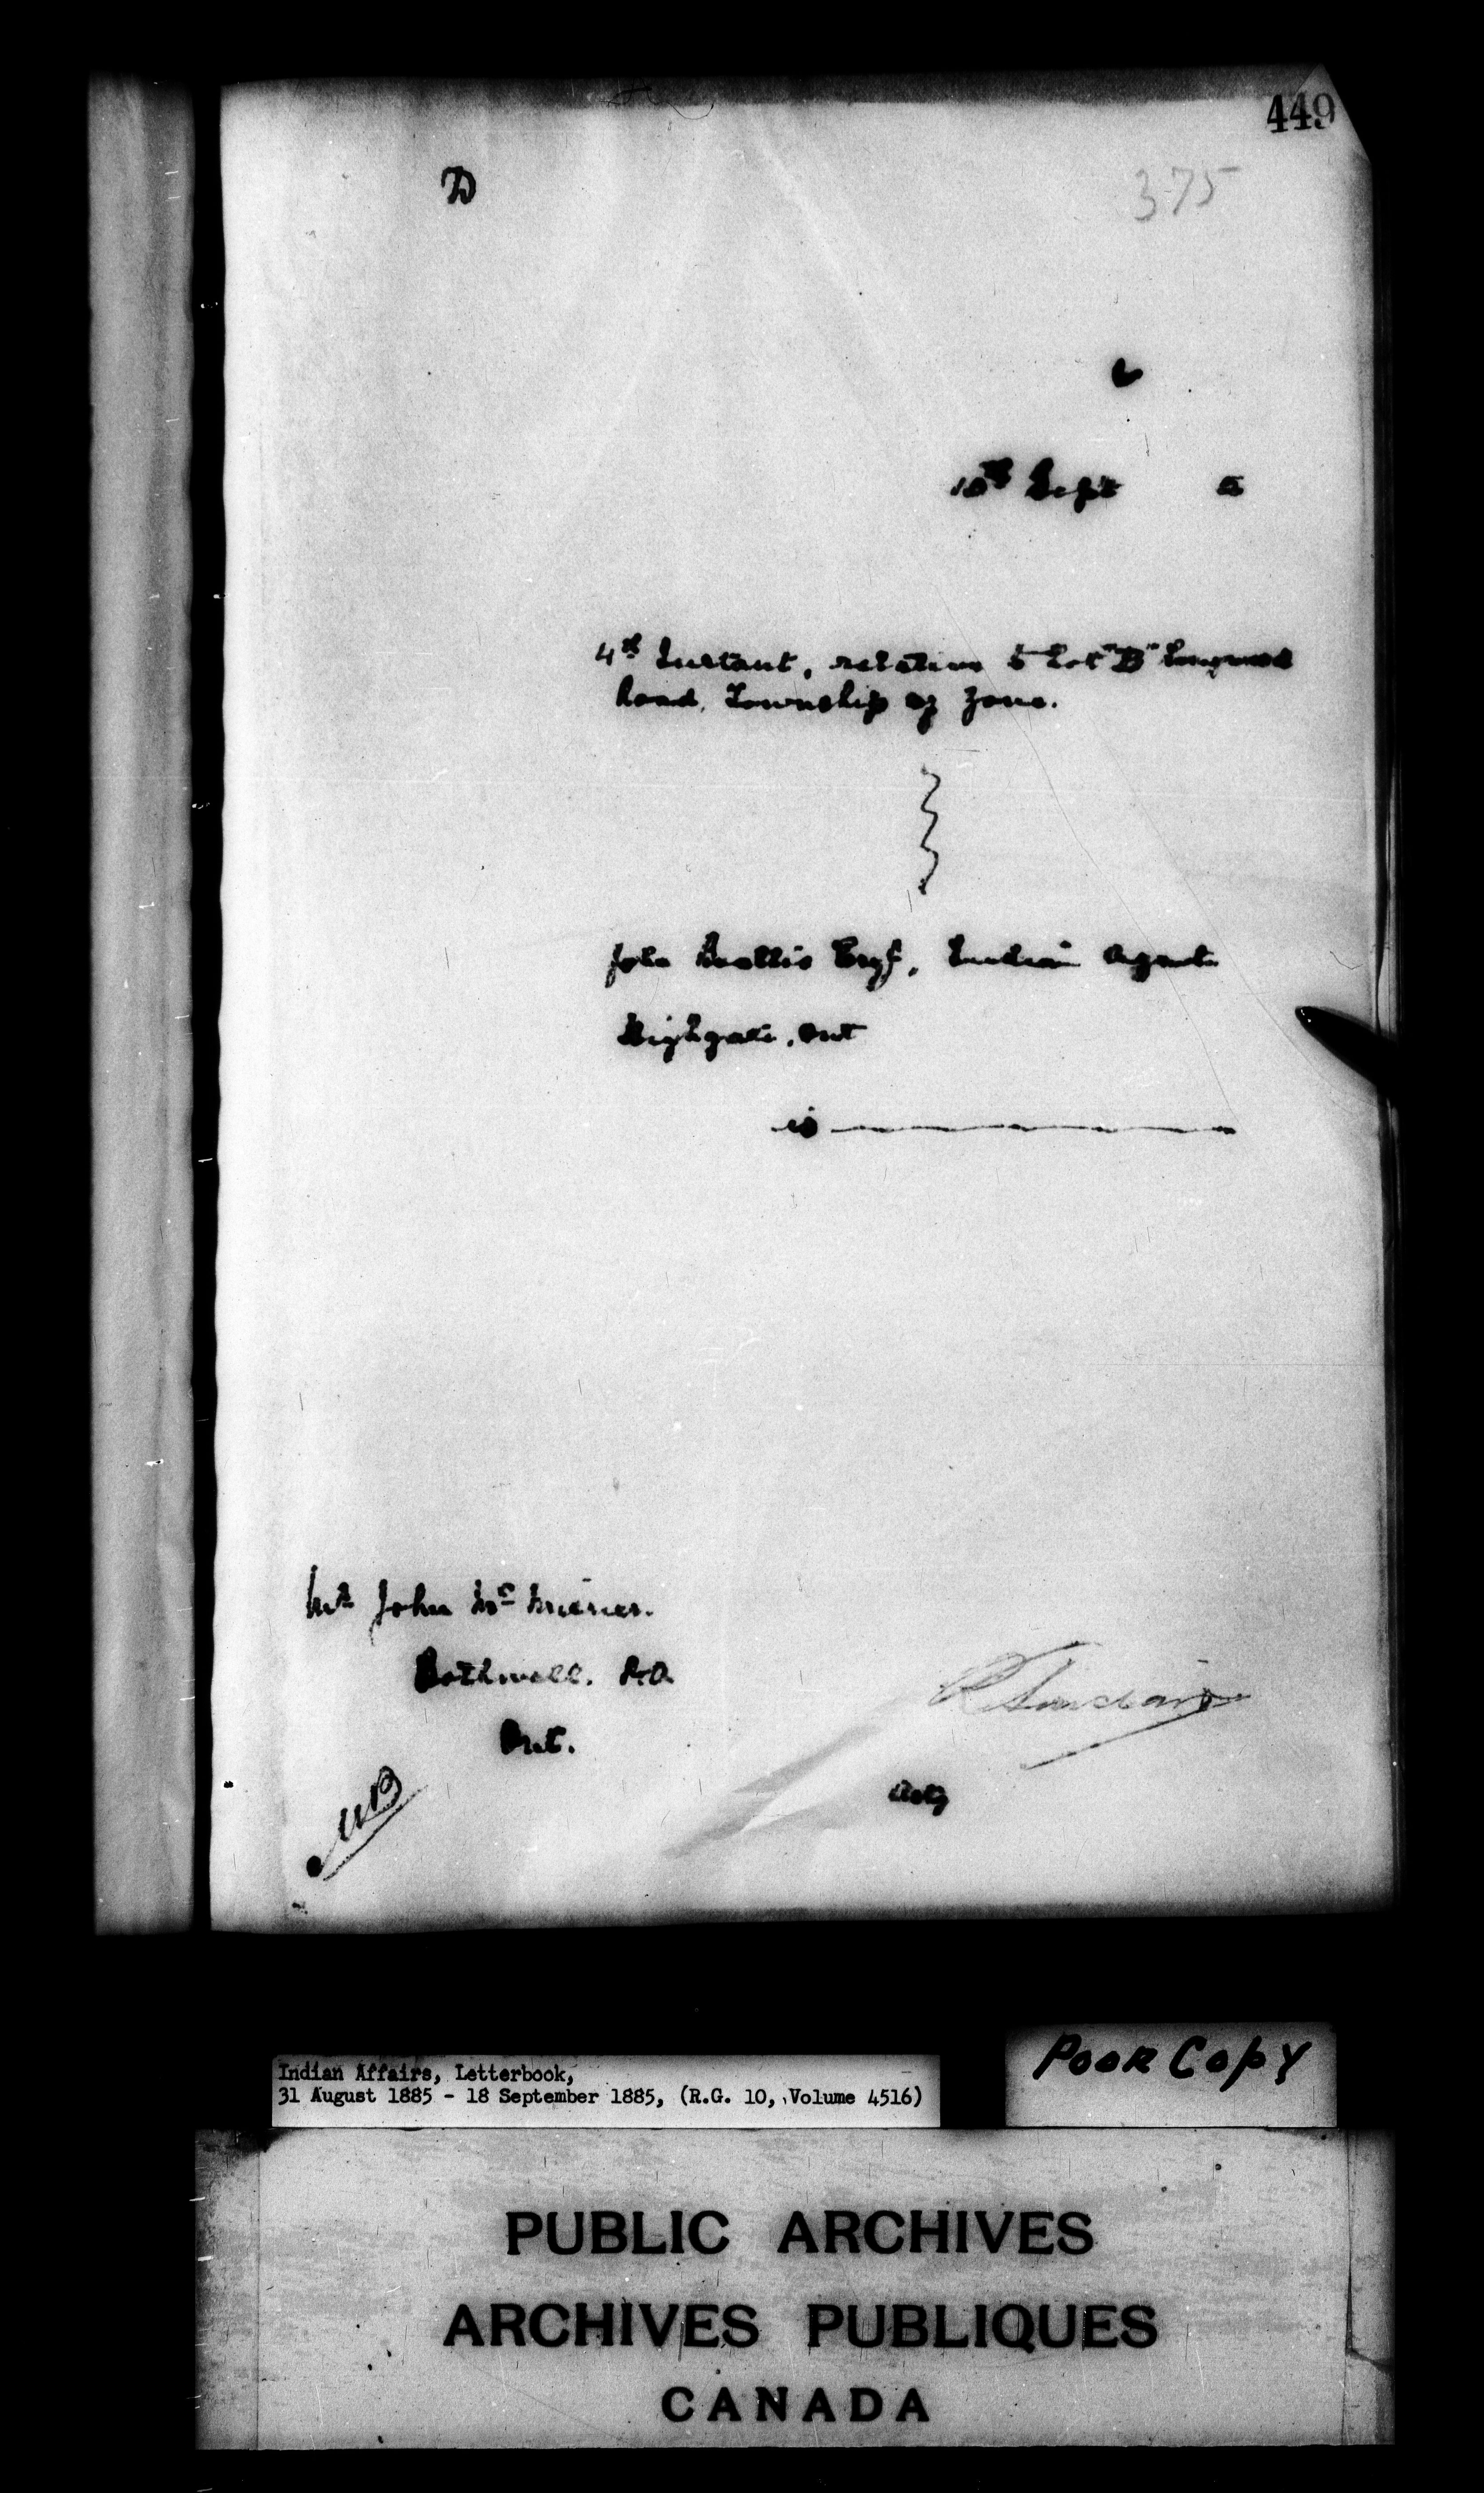 449
D
375
10th Sept 5
4th Instant, relative to Lot "B" Longwood
Road, Township of Zone.
John Beattie Esqr, Indian Agent
Highgate, Ont
is
Mr John Mc
Bothwell. P.O.
Ont.
R Sinclair
Actg
Indian Affairs, Letterbook,
31 August 1885 - 18 September 1885, (R.G. 10, Volume 4516)
Poor Copy
PUBLIC ARCHIVES
ARCHIVES PUBLIQUES
CANADA